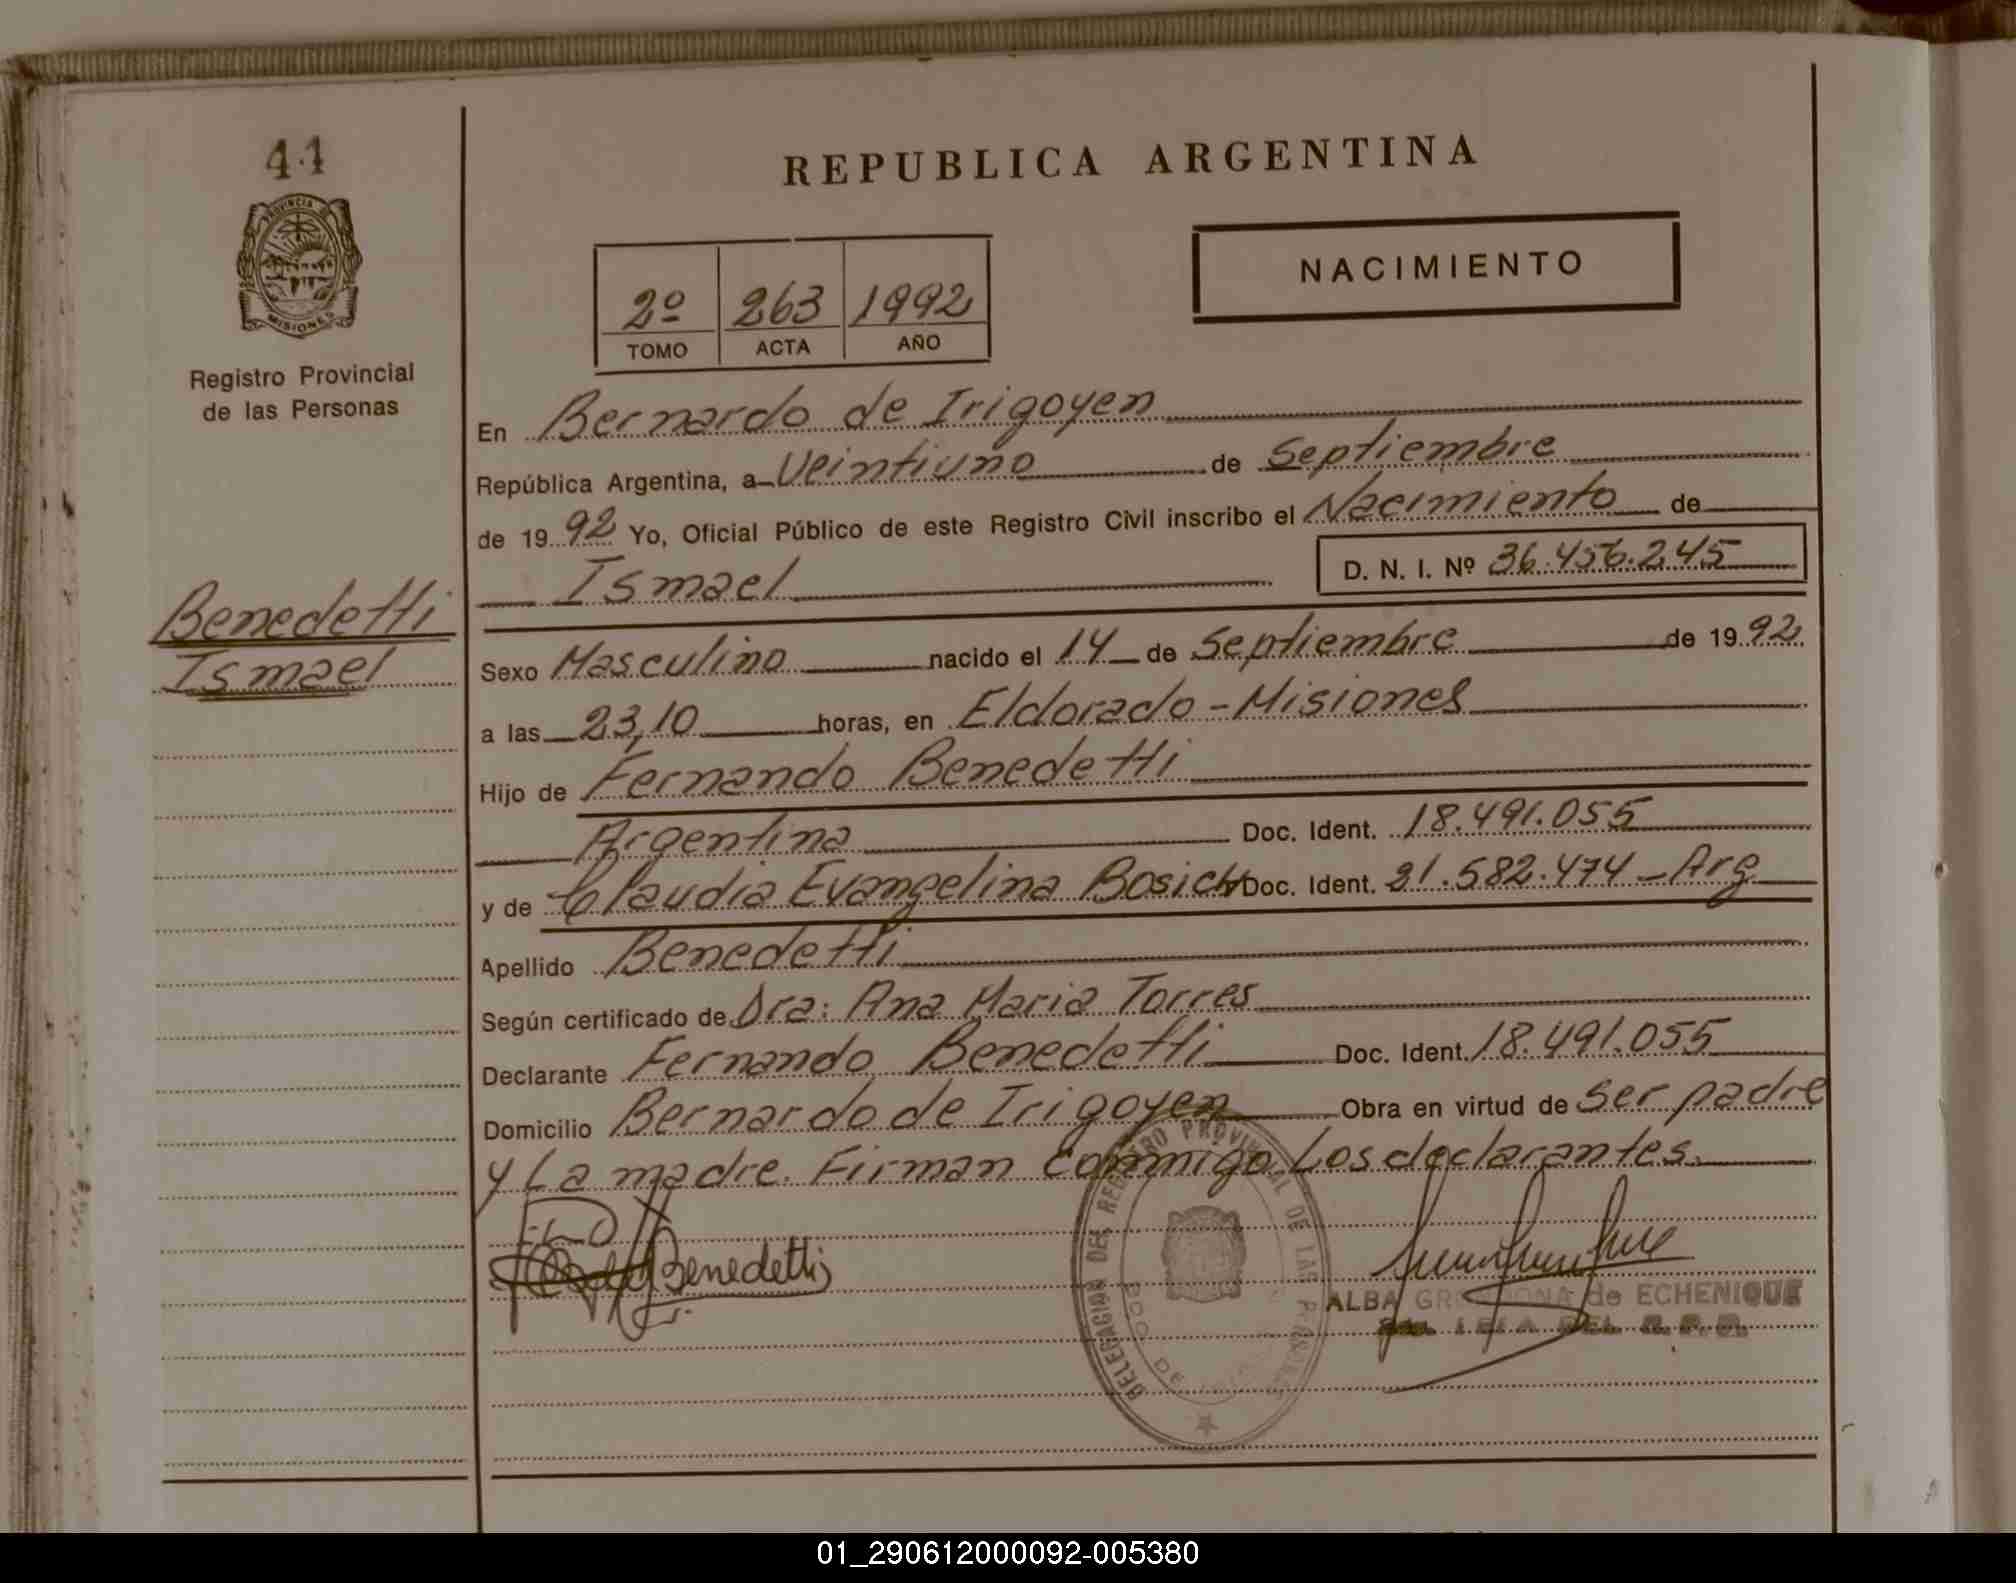 41
PROVINCIA DE
MISIONES
Registro Provincial
de las Personas
Benedetti
Ismael
REPUBLICA ARGENTINA
NACIMIENTO
2º 263 1992
TOMO ACTA AÑO
En Bernardo de Irigoyen
República Argentina, a Veintiuno de Septiembre
de 1992 Yo, Oficial Público de este Registro Civil inscribo el Nacimiento de
Ismael D. N. I. Nº 36.456.245
Sexo Masculino nacido el 14 de Septiembre de 1992
a las 23,10 horas, en Eldorado - Misiones
Hijo de Fernando Benedetti
Argentina Doc. Ident. 18.491.055
y de Claudia Evangelina Bosich Doc. Ident. 21.582.474 - Arg
Apellido Benedetti
Según certificado de Dra: Ana Maria Torres
Declarante Fernando Benedetti Doc. Ident. 18.491.055
Domicilio Bernardo de Irigoyen Obra en virtud de ser padre
y La madre. Firman Conmigo Los declarantes.
Benedetti
DELEGACION DEL REGISTRO PROVINCIAL DE LAS PERSONAS
BDO DE
ALBA de ECHENIQUE
DEL R. P. P.
01_290612000092-005380